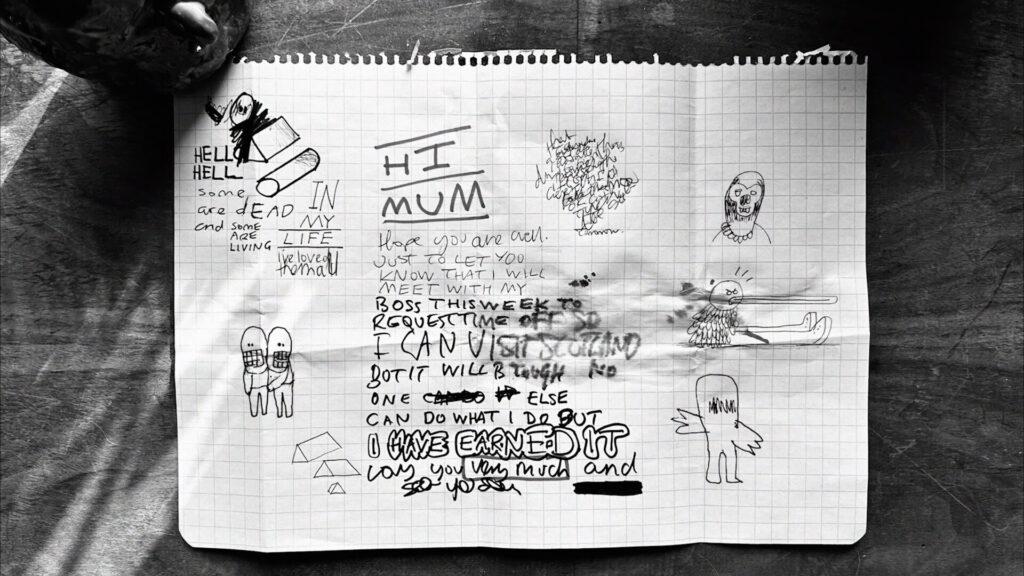 HELLO
HELL
some
are dEAD
and SOME
ARE
LIVING
IN
MY
LIFE
ive loved
them all
HI
MUM
Hope you are well.
JUST TO LET YOU
KNOW THAT I WILL
MEET WITH MY
BOSS THIS WEEK TO
REQUEST TIME OFF SO
I CAN VISIT SCOTLAND
BUT IT WILL B TOUGH NO
ONE ELSE
CAN DO WHAT I DO BUT
I HAVE EARNED IT
LOVE you very much and